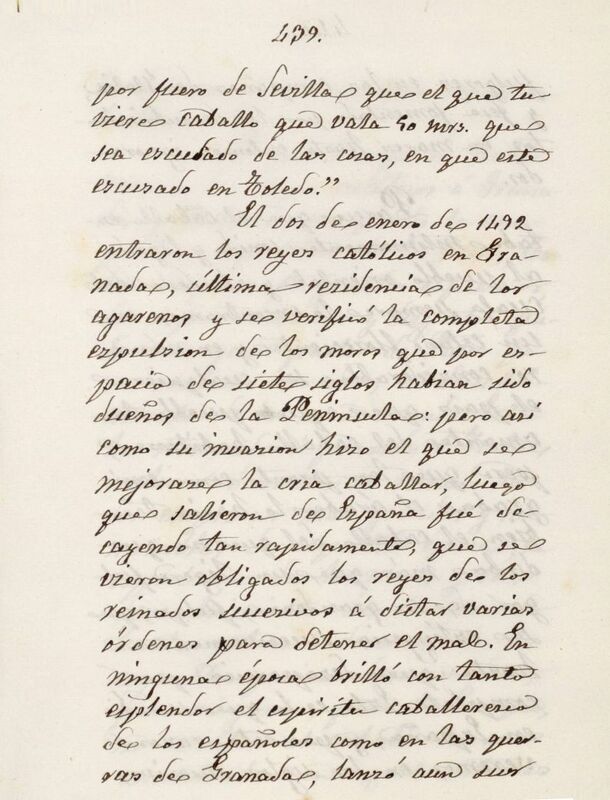 439.
por fuero de Sevilla que el que tu-
viere caballo que vala 50 mrs. que
sea escusado de las cosas, en que este
escusado en Toledo."
El dos de enero de 1492
entraron los reyes católicos en Gra-
nada, última residencia de los
agarenos y se verificó la completa
espulsion de los moros que por es-
pacio de siete siglos habian sido
dueños de la Peninsula: pero asi
como su invasion hizo el que se
mejorase la cria caballar, luego
que salieron de España fué de-
cayendo tan rapidamente, que se
vieron obligados los reyes de los
reinados sucesivos á dictar varias
órdenes para detener el mal. En
ninguna época brilló con tanto
esplendor el espiritu caballeresco
de los españoles como en las guer-
ras de Granada, lanzó aun sus